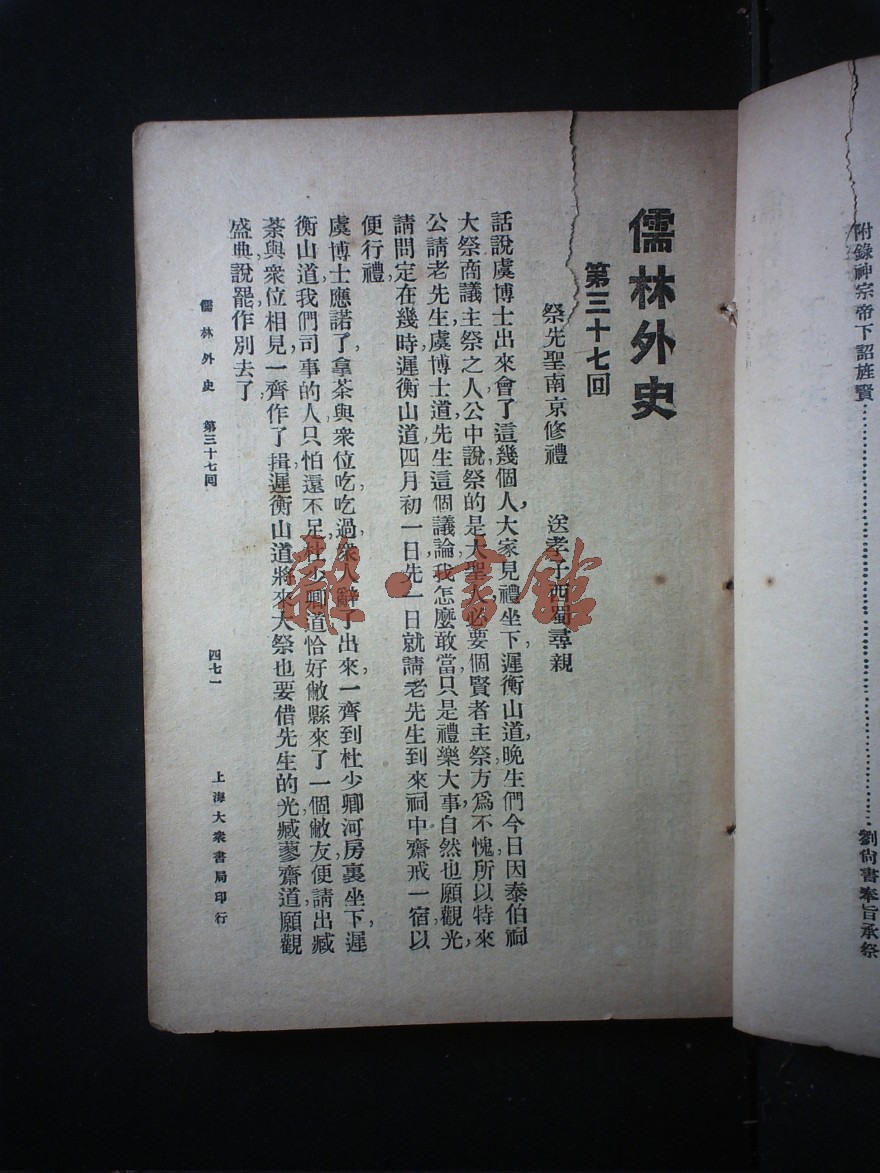 附錄神宗帝下詔旌賢……劉尚書奉旨承祭
儒林外史
第三十七回
祭先聖南京修禮　送孝子西蜀尋親
話說虞博士出來會了這幾個人,大家見禮坐下,遲衡山道,晚生們今日因泰伯祠
大祭商議主祭之人,公中說祭的是大聖人,必要個賢者主祭方爲不愧,所以特來
公請老先生,虞博士道,先生這個議論,我怎麼敢當,只是禮樂大事,自然也願觀光,
請問定在幾時,遲衡山道,四月初一日,先一日就請老先生到來祠中,齋戒一宿,以
便行禮,
虞博士應諾了,拿茶與衆位吃,吃過,衆人辭了出來,一齊到杜少卿河房裏坐下,遲
衡山道,我們司事的人只怕還不足,杜少卿道,恰好敝縣來了一個敝友,便請出臧
荼與衆位相見,一齊作了揖,遲衡山道,將來大祭也要借先生的光,臧蓼齋道,願觀
盛典,說罷,作別去了,
儒林外史　第三十七回　四七一　上海大衆書局印行